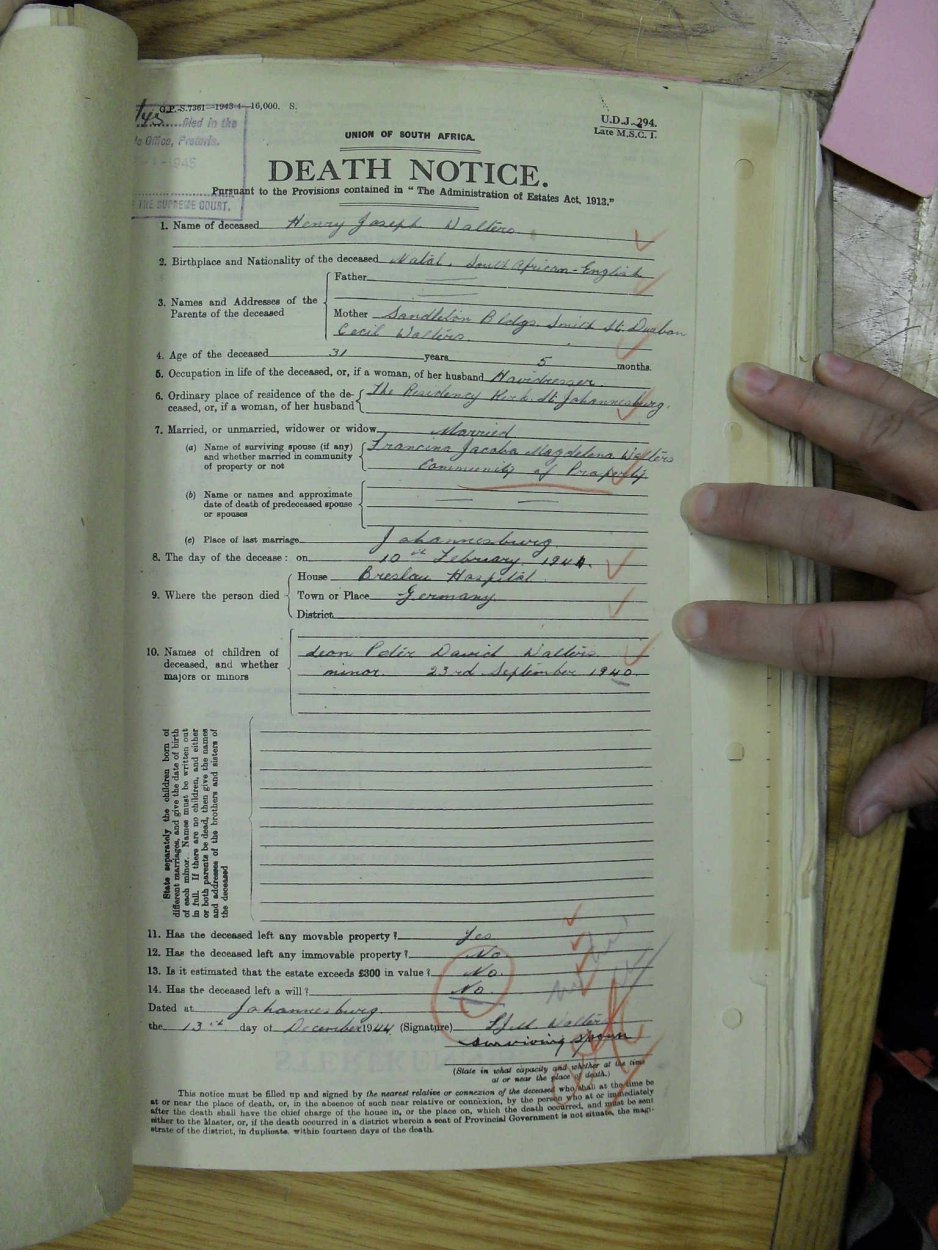 G.P.-S.7361—1943-4—16,000. S.
U.D.J. 294.
Late M.S.C. 1.
filed in the
Office, Pretoria.
1945
THE SUPREME COURT.
UNION OF SOUTH AFRICA.
DEATH NOTICE.
Pursuant to the Provisions contained in "The Administration of Estates Act, 1913."
1. Name of deceased Henry Joseph Walters
2. Birthplace and Nationality of the deceased Natal. South African-English
3. Names and Addresses of the Parents of the deceased
Father
Mother Sandleton Bldgs. Smith St. Durban
Cecil Walters.
4. Age of the deceased 31 years 5 months.
5. Occupation in life of the deceased, or, if a woman, of her husband Hairdresser.
6. Ordinary place of residence of the deceased, or, if a woman, of her husband The Residency Kerk St. Johannesburg.
7. Married, or unmarried, widower or widow Married
(a) Name of surviving spouse (if any) and whether married in community of property or not Francina Jacoba Magdelena Walters
Community of Property
(b) Name or names and approximate date of death of predeceased spouse or spouses
(c) Place of last marriage Johannesburg.
8. The day of the decease: on 10th February 1944.
9. Where the person died
House Breslau Hospital
Town or Place Germany
District
10. Names of children of deceased, and whether majors or minors
Leon Peter David Walters.
minor. 23rd September 1940.
State separately the children born of
different marriages, and give the date of birth
of each minor. Names must be written out
in full. If there are no children, and either
or both parents be dead, then give the names
and addresses of the brothers and sisters of
the deceased
11. Has the deceased left any movable property? Yes
12. Has the deceased left any immovable property? No.
13. Is it estimated that the estate exceeds £300 in value? No.
14. Has the deceased left a will? No.
Dated at Johannesburg.
the 13th day of December 1944 (Signature) Walters
surviving spouse
(State in what capacity and whether at the time
at or near the place of death.)
This notice must be filled up and signed by the nearest relative or connexion of the deceased who shall at the time be
at or near the place of death, or, in the absence of such near relative or connexion, by the person who at or immediately
after the death shall have the chief charge of the house in, or the place on, which the death occurred, and must be sent
either to the Master, or, if the death occurred in a district wherein a seat of Provincial Government is not situate, the magi-
strate of the district, in duplicate, within fourteen days of the death.